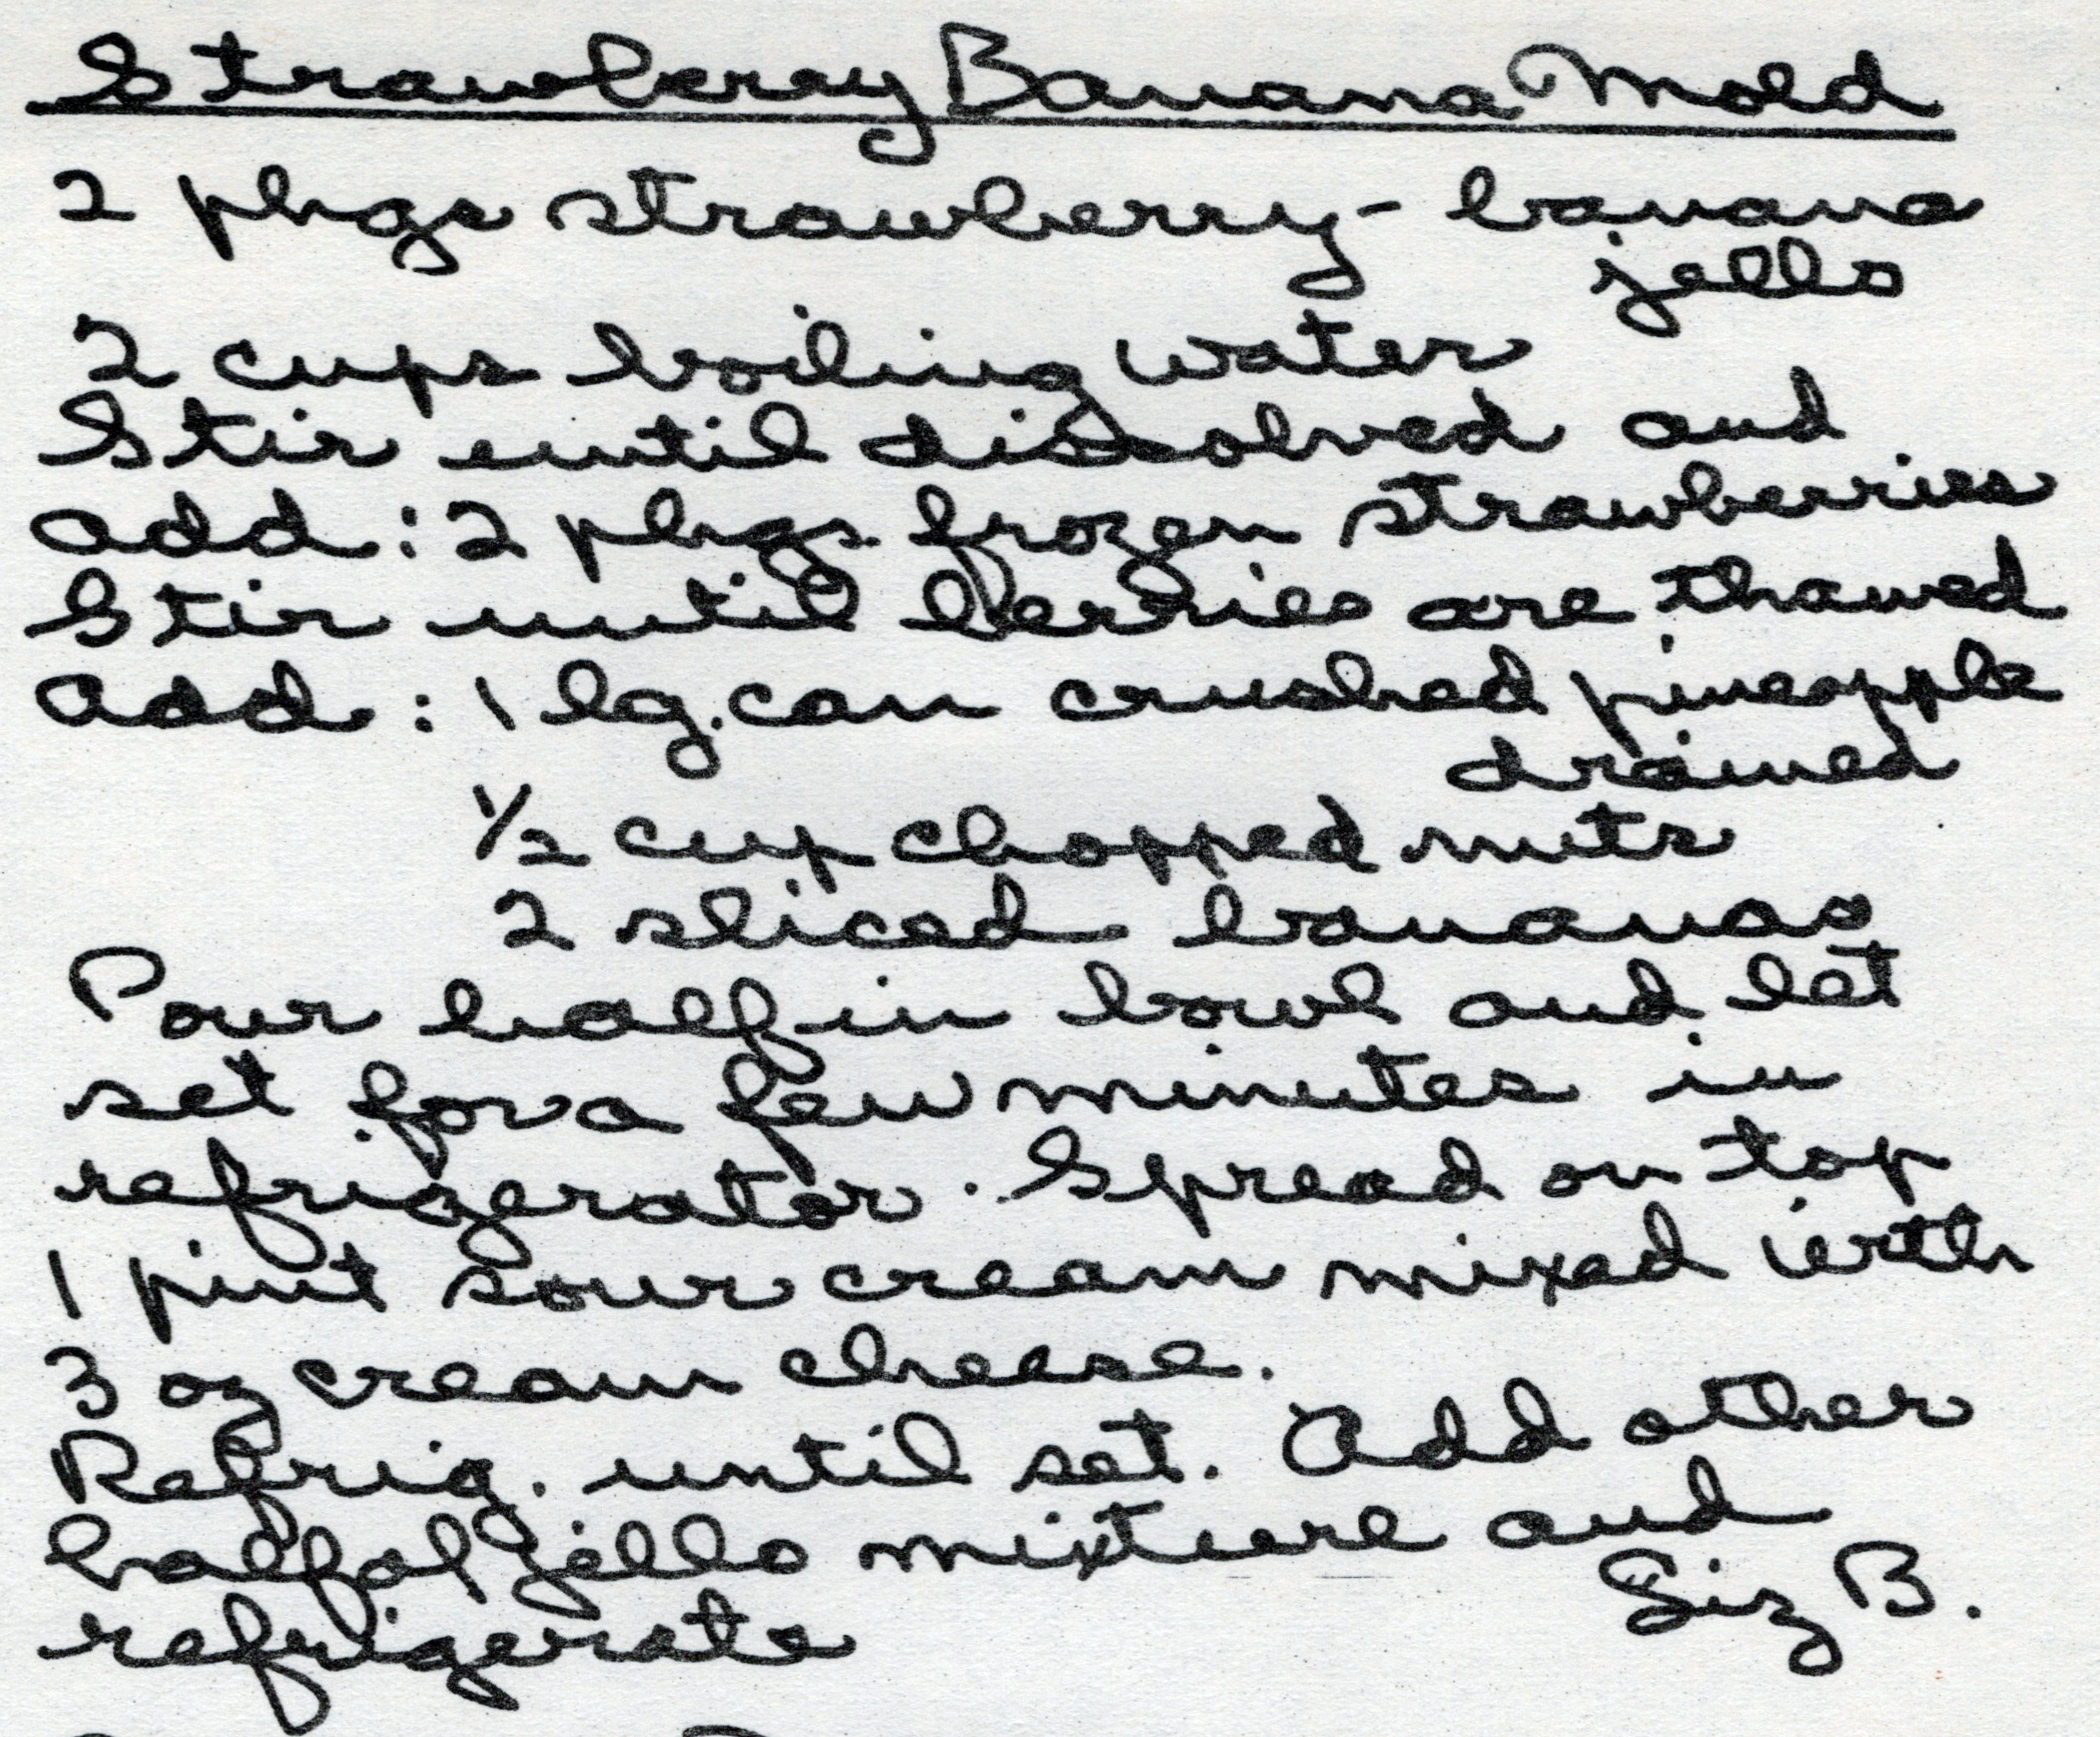 Strawberry Banana Mold
2 pkgs strawberry - banana
jello
2 cups boiling water
Stir until dissolved and
add : 2 pkgs. frozen strawberries
Stir until berries are thawed
add : 1 lg. can crushed pineapple
drained
1/2 cup chopped nuts
2 sliced bananas
Pour half in bowl and let
set for a few minutes in
refrigerator. Spread on top
1 pint sour cream mixed with
3 oz cream cheese.
Refrig. until set. Add other
half of jello mixture and
refrigerate
B.